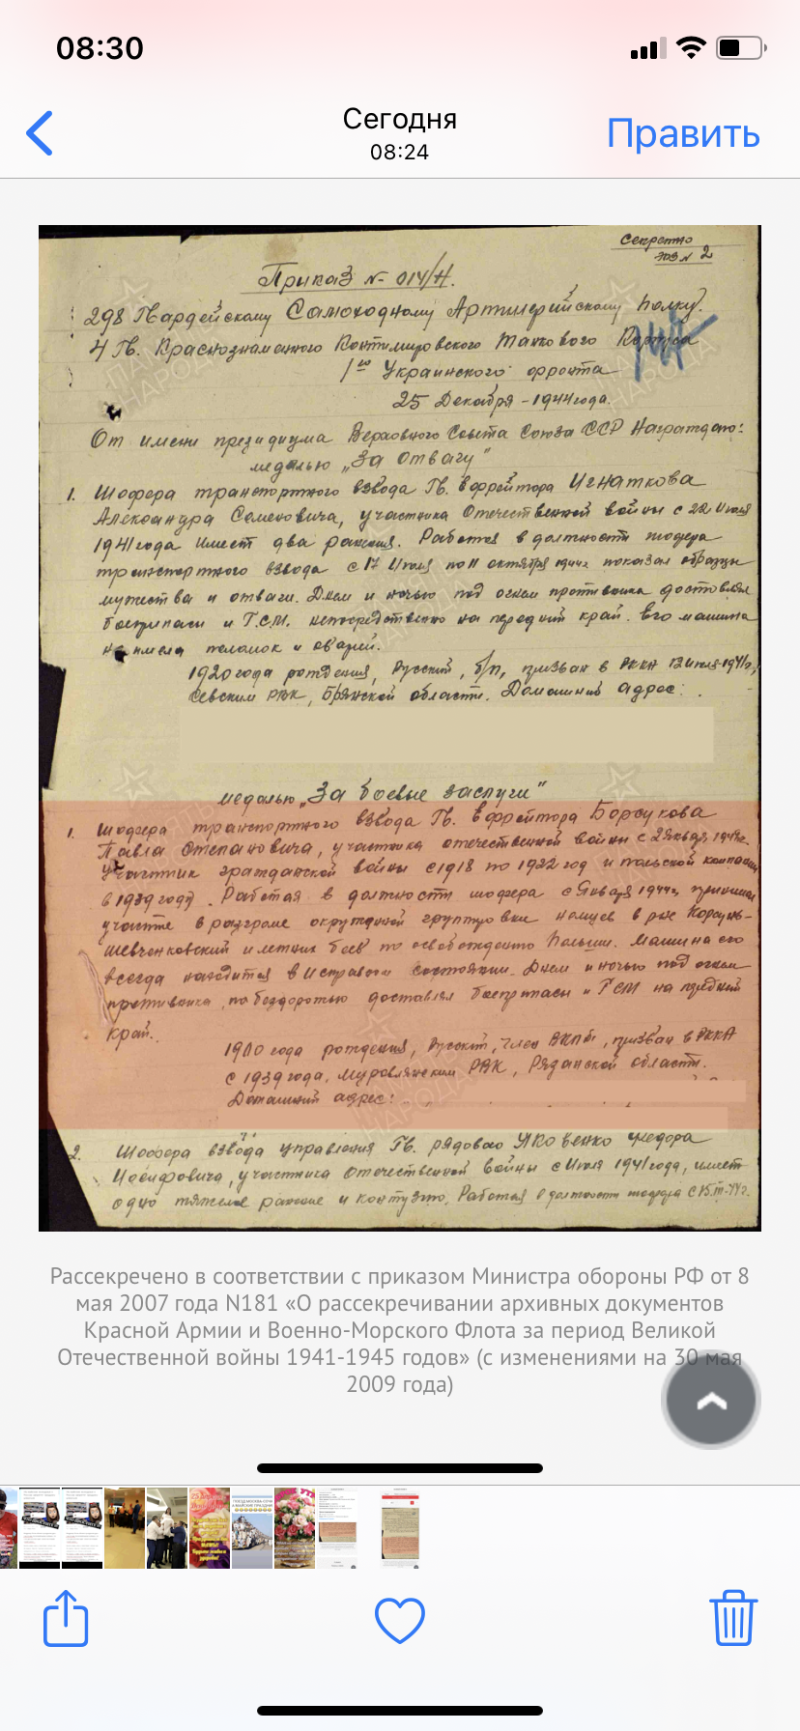 08:30
Сегодня
08:24
Править
Секретно
экз N 2
Приказ N- 014/Н.
298 Гвардейскому Самоходному Артилерийскому полку.
4 Гв. Краснознаменного Контимировского Танкового Корпуса
1го Украинского фронта
25 Декабря - 1944 года.
От имени президиума Верховного Совета Союза ССР Награждаю:
медалью „За отвагу"
1. Шофера транспортного взвода Гв. Ефрейтора Игнаткова
Александра Семеновича, участника Отечественной войны с 22 Июля
1941 года имеет два ранения. Работая в должности шофера
транспортного взвода с 17 Июля по 11 октября 1944 показал образцы
мужества и отваги. Днем и ночью под огнем противника доставлял
боеприпасы и Г.С.М. непосредственно на передний край. Его машина
не имела поломок и аварей.
1920 года рождения, Русский, б/п, призван в РККА 12 июля 1941 г.,
Севским РВК, Брянской области. Домашний адрес:
медалью „За боевые заслуги"
1. Шофера транспортного взвода Гв. Ефрейтора Борсукова
Павла Степановича, участника отечественной войны с
Участник гражданской войны с 1918 по 1922 год и польской компании
в 1939 году. Работая в должности шофера с Января 1944 г. принимал
участие в разгроме окруженной группировки немцев в р-не Корсунь-
Шевченковский и летних боев по освобождению Польши. Машина его
всегда находится в исправном состоянии. Днем и ночью под огнем
противника, по бездорожью доставлял боеприпасы и ГСМ на передний
край.
1900 года рождения, Русский, член ВКПб, призван в РККА
с 1939 года. Муровлянским РВК, Рязанской области.
Домашний адрес:
2. Шофера взвода управления Гв. рядового Яковенко Федора
Иосифовича, участника Отечественной войны с Июля 1941 года, имеет
одно тяжелое ранение и контузию. Работая в должности шофера с 15.III-44 г.
Рассекречено в соответствии с приказом Министра обороны РФ от 8
мая 2007 года N181 «О рассекречивании архивных документов
Красной Армии и Военно-Морского Флота за период Великой
Отечественной войны 1941-1945 годов» (с изменениями на 30 мая
2009 года)